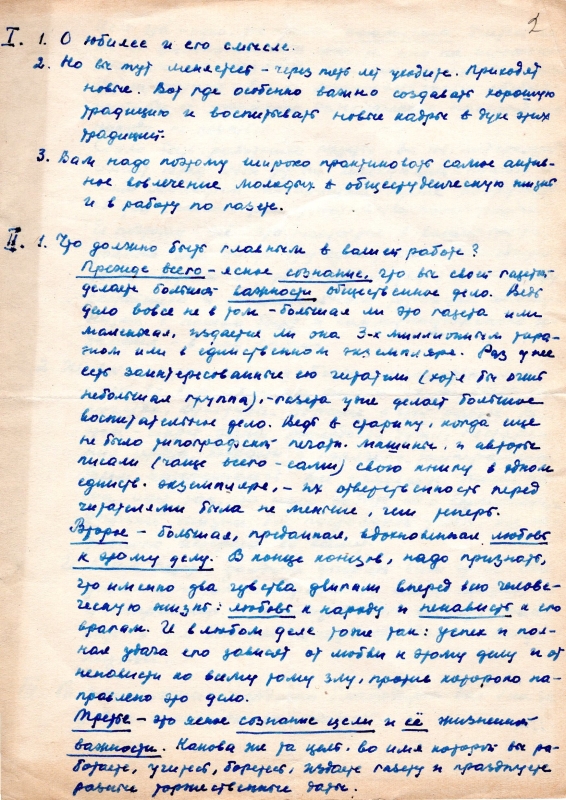 2
I. 1. О юбилее и его смысле.
2. Но вы тут меняетесь – через пять лет уходите. Приходят
новые. Вот где особенно важно создавать хорошую
традицию и воспитывать новые кадры в духе этих
традиций.
3. Вам надо поэтому широко практиковать самое актив-
ное вовлечение молодых в общестуденческую жизнь
и в работу по газете.
II. 1. Что должно быть главным в вашей работе?
Прежде всего – ясное сознание, что вы своей газетой
делаете большой важности общественное дело. Ведь
дело вовсе не в том – большая ли это газета или
маленькая, издается ли она 3-х миллионным тира-
жом или в единственном экземпляре. Раз уже
есть заинтересованные ею читатели (хотя бы очень
небольшая группа), – газета уже делает большое
воспитательное дело. Ведь в старину, когда еще
не было типографской печатн. машины, и авторы
писали (чаще всего – сами) свою книгу в одном
единств. экземпляре, – их ответственность перед
читателями была не меньше, чем теперь.
Второе – большая, преданная, вдохновенная любовь
к этому делу. В конце концов, надо признать,
что именно два чувства двигали вперед всю челове-
ческую жизнь: любовь к народу и ненависть к его
врагам. И в любом деле тоже так: успех и пол-
ная удача его зависят от любви к этому делу и от
ненависти ко всему тому злу, против которого на-
правлено это дело.
Третье – это ясное сознание цели и её жизненной
важности. Какова же та цель, во имя которой вы ра-
ботаете, учитесь, боретесь, издаете газету и празднуете
разные торжественные даты.